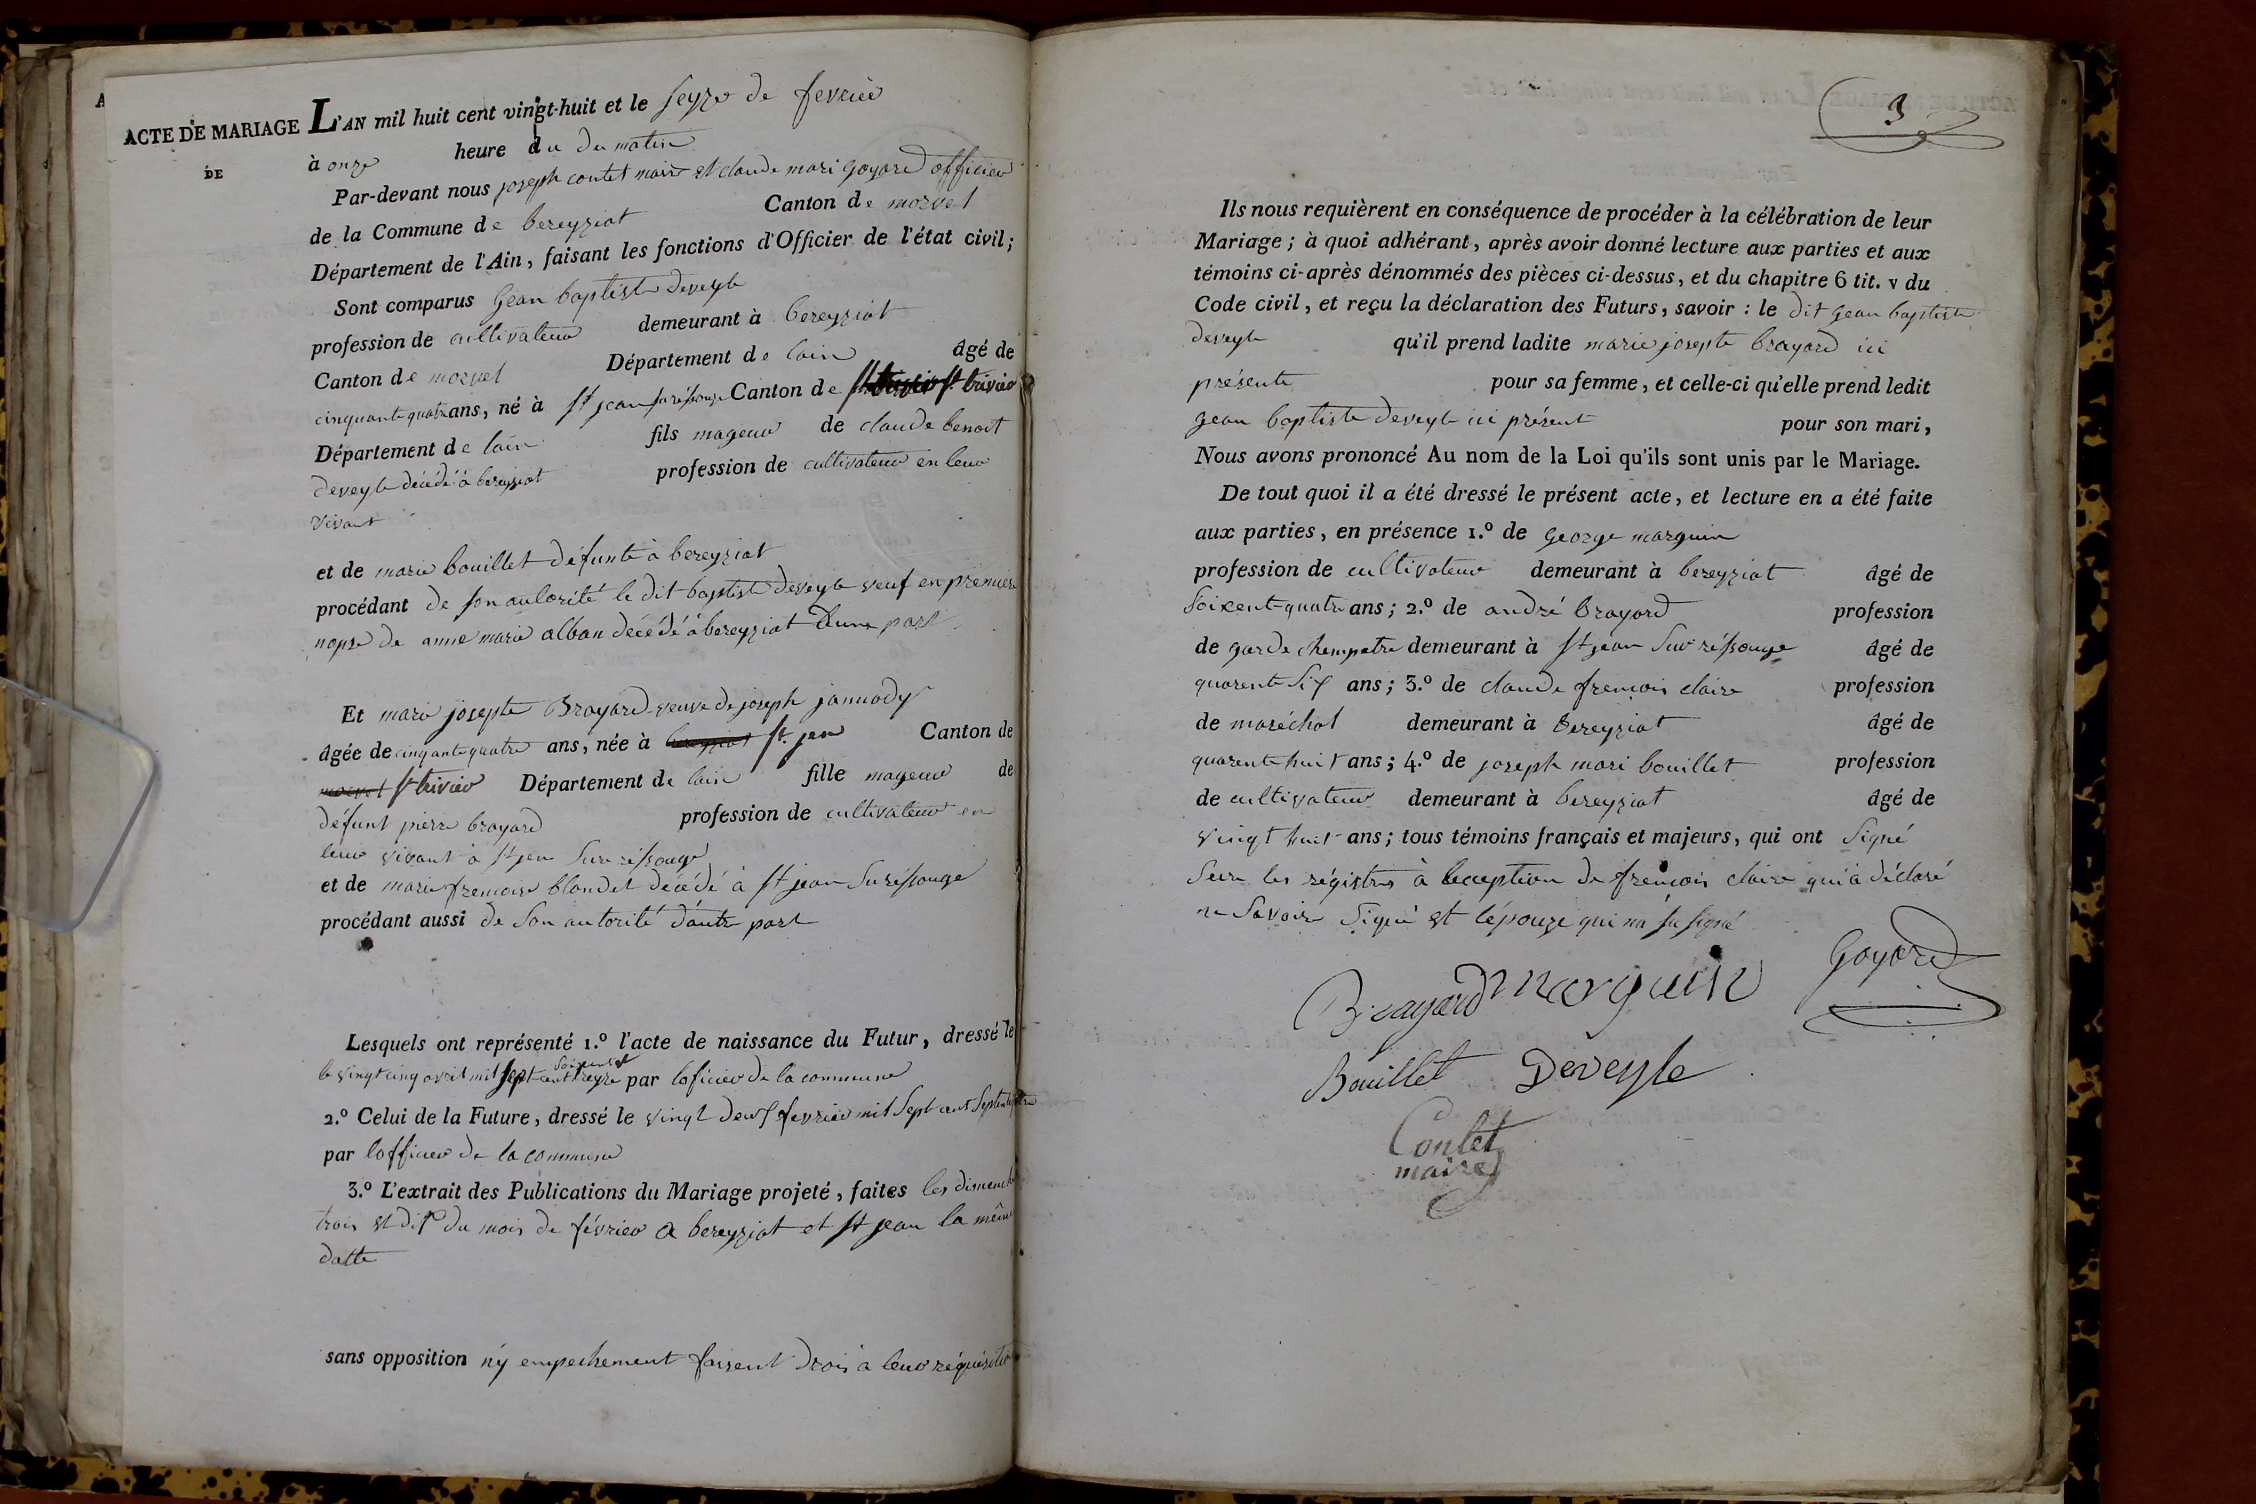 A
ACTE DE MARIAGE
DE
L'AN mil huit cent vingt-huit et le seyze de fevrier
à onze heure du du matin
Par-devant nous joseph contet maire et claude mari goyard officier
de la Commune de bereyziat Canton de
Département de l'Ain, faisant les fonctions d'Officier de l'état civil;
Sont comparus gean baptiste deveyle
profession de cultivateur demeurant à bereyziat
Canton de Département de lain âgé de
cinquante quatre ans, né à st jean sur réssouze Canton de st trivier
Département de lain fils mageur de claude benoit
deveyle décédé à bereyziat profession de cultivateur en leur
vivant
et de marie bouillet défunte à bereyziat
procédant de son autorité le dit baptiste deveyle veuf en premiere
nopse de anne marie alban décédé à bereyziat dune part
Et marie josepte Brayard veuve de joseph jannody
âgée de cinquante quatre ans, née à bereyziat st jean Canton de
st trivier Département de lain fille mageur de
défunt pierre brayard profession de cultivateur en
leur vivant à st jean sur réssouze
et de marie françoise blondet décédé à st jean su réssouge
procédant aussi de son autorité d'autre part
Lesquels ont représenté 1.º l'acte de naissance du Futur, dressé le
le vingt cinq avril mil sept cent soixante treyze par loficier de la commune
2.º Celui de la Future, dressé le vingt deux fevrier mil sept cent
par lofficier de la commune
3.º L'extrait des Publications du Mariage projeté, faites les dimenche
trois et dix du mois de février a bereyziat et st jean la même
datte
sans opposition n'y empechement faisent drois à leur réquisition
3
Ils nous requièrent en conséquence de procéder à la célébration de leur
Mariage; à quoi adhérant, après avoir donné lecture aux parties et aux
témoins ci-après dénommés des pièces ci-dessus, et du chapitre 6 tit. v du
Code civil, et reçu la déclaration des Futurs, savoir: le dit gean baptiste
deveyle qu'il prend ladite marie josepte brayard ici
présente pour sa femme, et celle-ci qu'elle prend ledit
gean baptiste deveyle ici présent pour son mari,
Nous avons prononcé Au nom de la Loi qu'ils sont unis par le Mariage.
De tout quoi il a été dressé le présent acte, et lecture en a été faite
aux parties, en présence 1.º de george marguin
profession de cultivateur demeurant à bereyziat âgé de
soixent-quatre ans; 2.º de andré brayard profession
de garde chempetre demeurant à st jean sur réssouge âgé de
quarente six ans; 3.º de claude frençois claire profession
de maréchal demeurant à bereyziat âgé de
quarente huit ans; 4.º de joseph mari bouillet profession
de cultivateur demeurant à bereyziat âgé de
vingt huit ans; tous témoins français et majeurs, qui ont signé
sur les régistres à leception de frençois claire qui à déclaré
ne savoir signé et lépouze qui na su signé
Brayard marguin goyard
Bouillet Deveyle
Contet
maire